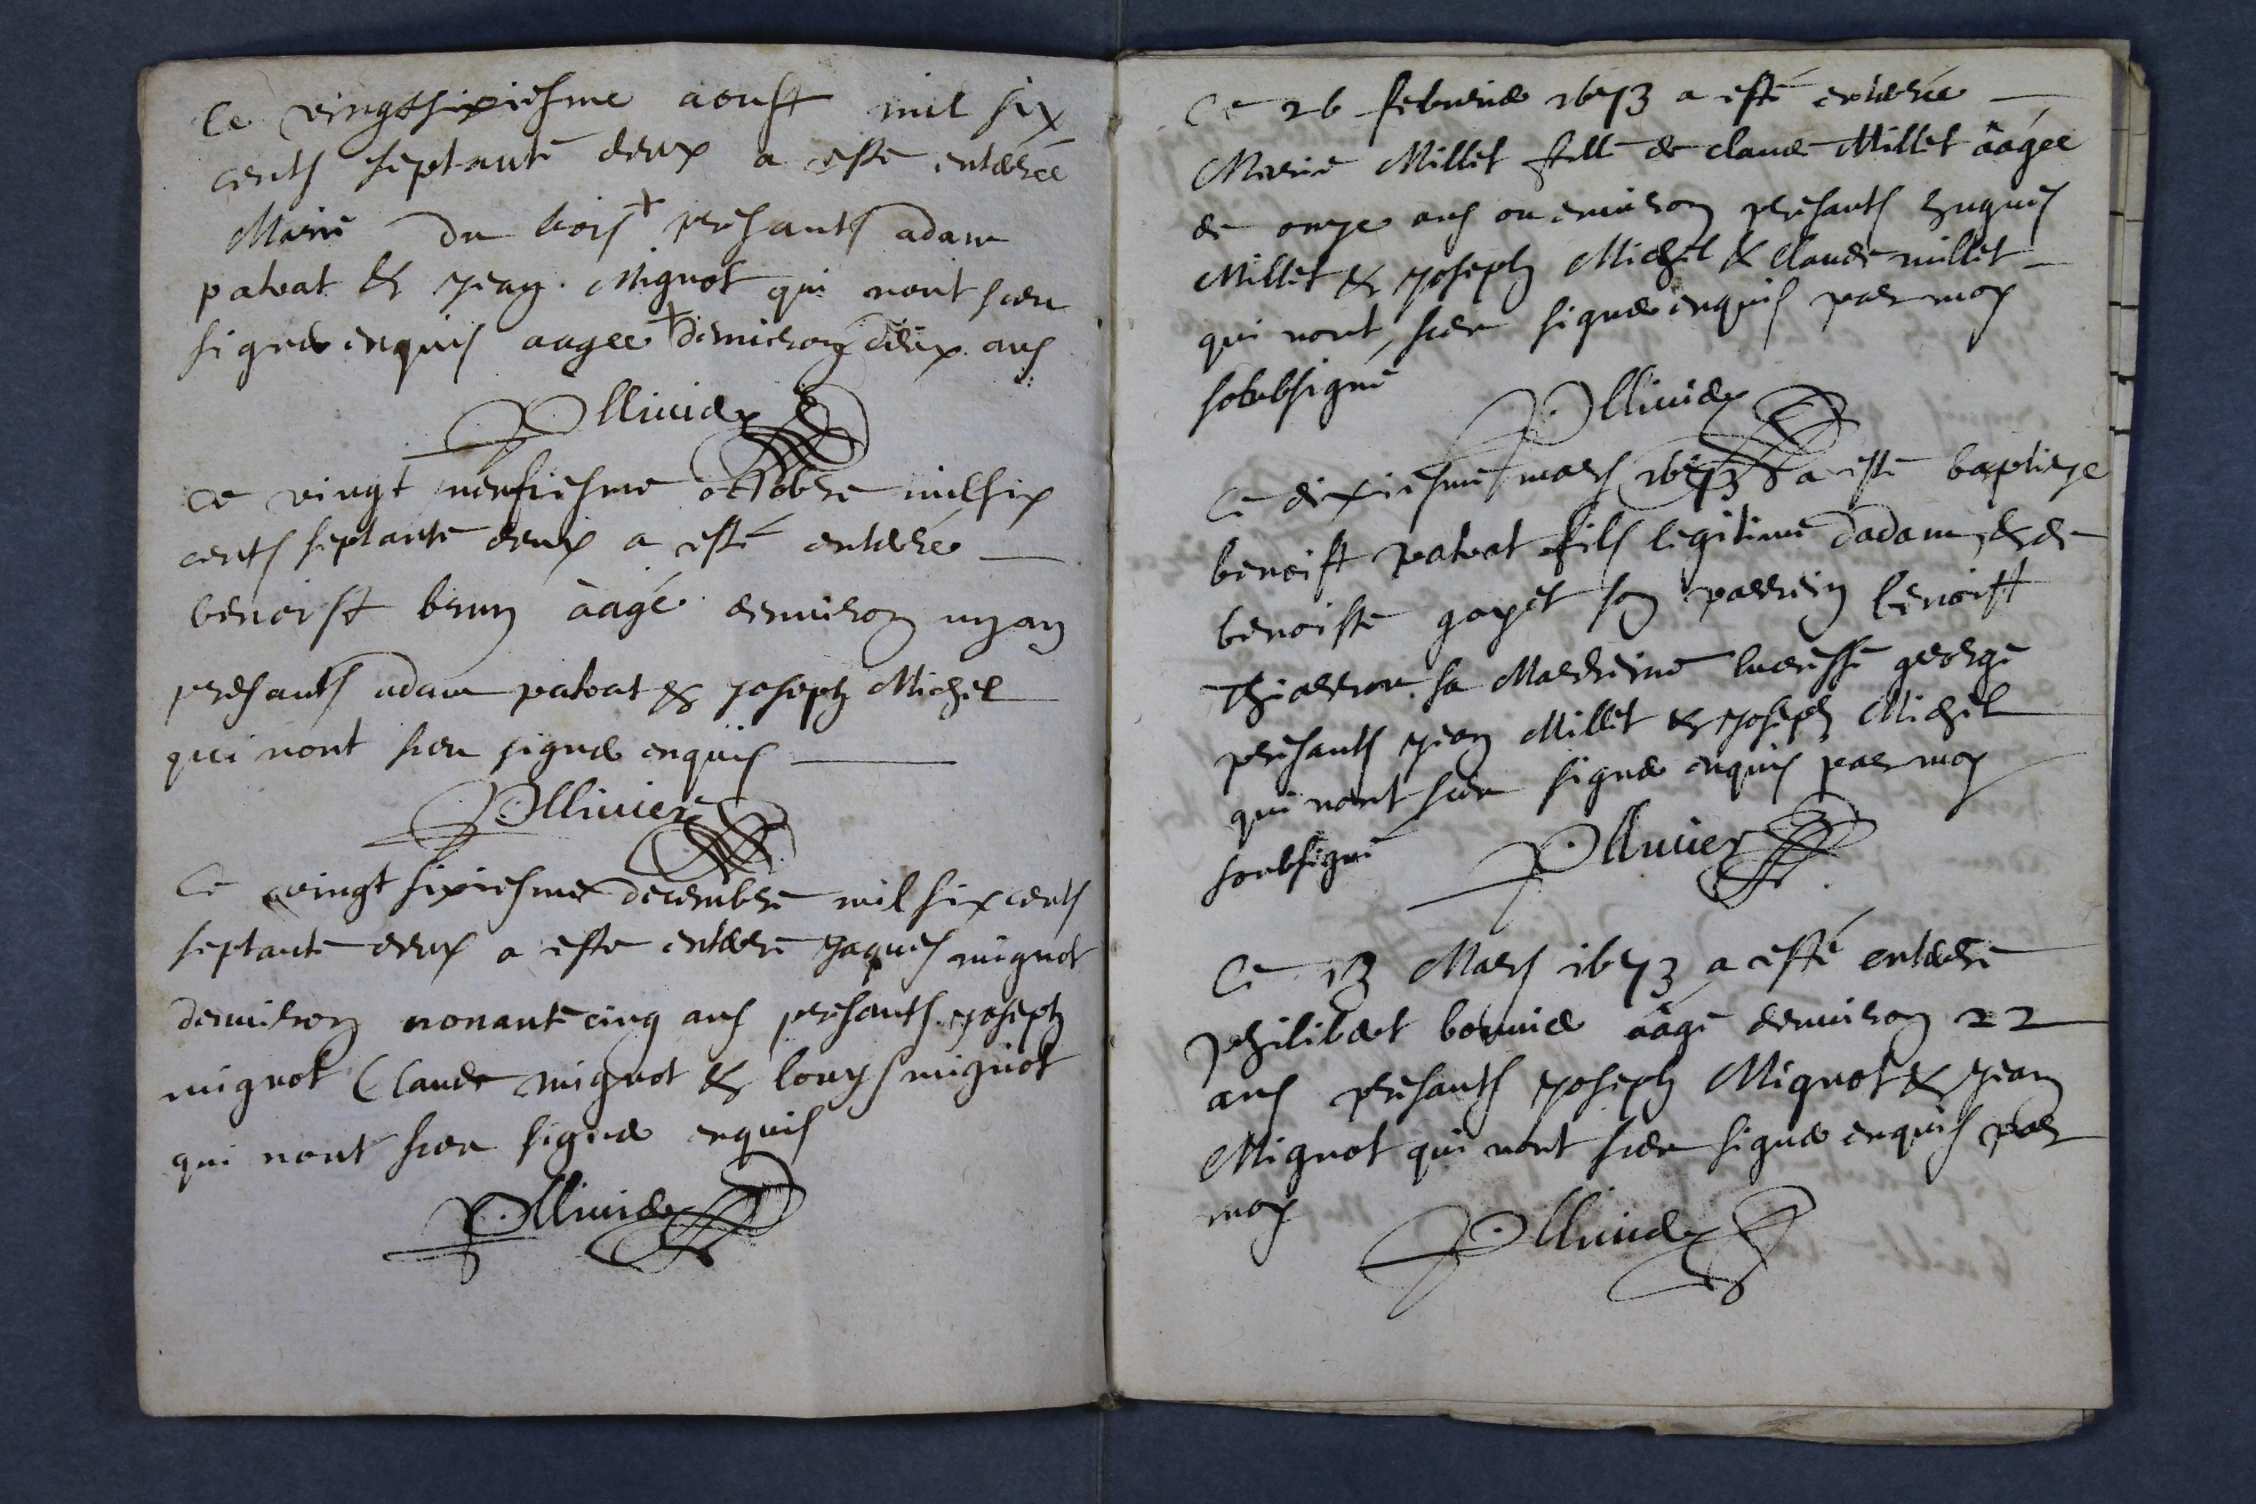 Ce vingtsixiesme aoust mil six
cents septante deux a este enterée
Marie du bois + presants adam
patvat & Jean Mignot qui nont sceu
signer enquis aagee + denviron deux ans
P. Ollivier
Ce vingt neufiesme octobre mil six
cents septante deux a esté enterré
benoist brun àagé denviron un an
presants adam patvat & Joseph Michel
qui nont sceu signer enquis
P. Ollivier
Ce vingt sixiesme decembre mil six cents
septante deux a este enterre Jaques mignot
denviron nonante cinq ans presants Joseph
mignot Claude mignot & louys mignot
qui nont sceu signer enquis
P. Ollivier
Ce 26 febvrier 1673 a esté enterée
Marie Millet fille de claude Millet àagee
de onze ans ou environ presants hugues
Millet & Joseph Michel & Claude millet
qui nont sceu signer enquis par moy
soubsigné
P. Ollivier
Ce dixiesme mars 1673 a este baptize
benoist patvat fils legitime dadam & de
benoiste goyet son parrein benoist
Thiarron sa Marreine lucresse george
presants Jean Millet & Joseph Michel
qui nont sceu signer enquis par moy
soubsigné
P. Ollivier
Ce 13 Mars 1673 a esté enterre
philibert bonnier aàgé denviron 22
ans presants Joseph Mignot & Jean
Mignot qui nont sceu signer enquis par
moy
P. Ollivier